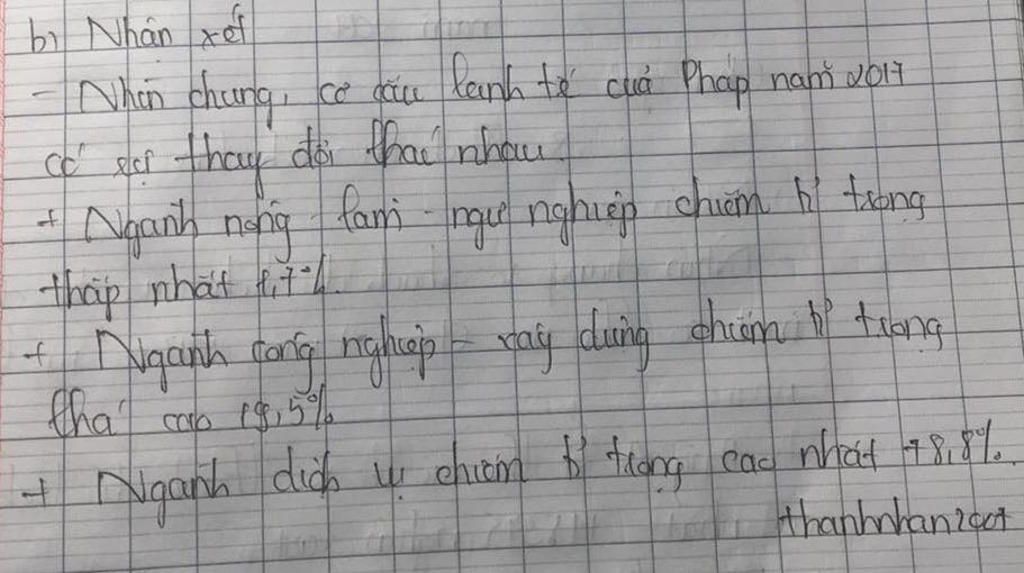 b) Nhận xét
- Nhìn chung, cơ cấu kinh tế của Pháp năm 2017
có sự thay đổi khác nhau
+ Ngành nông - lâm - ngư nghiệp chiếm tỉ trọng
thấp nhất 1,7%.
+ Ngành công nghiệp - xây dựng chiếm tỉ trọng
khá cao 19,5%
+ Ngành dịch vụ chiếm tỉ trọng cao nhất 78,8%.
thanhnhan2007